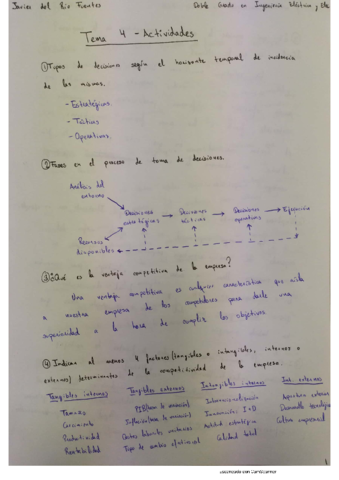 Javier del Río Fuentes Doble Grado en Ingeniería Eléctrica y
Tema 4 - Actividades
① Tipos de decisiones según el horizonte temporal de incidencia
de las mismas.
- Estratégicas
- Tácticas
- Operativas.
② Fases en el proceso de toma de decisiones.
Análisis del
entorno
Decisiones
estratégicas
Decisiones
tácticas
Decisiones
operativas
Ejecución
Recursos
disponibles
③ ¿Qué es la ventaja competitiva de la empresa?
Una ventaja competitiva es cualquier característica que
a nuestra empresa de los competidores para darle una
superioridad a la hora de cumplir los objetivos
④ Indicar al menos 4 factores (tangibles e intangibles, internos o
externos) determinantes de la competitividad de la empresa:
Tangibles internos Tangibles externos Intangibles internos Int. externos
Tamaño PIB Internacionalización
Crecimiento Inflación Innovación I+D Desarrollo tecnológico
Productividad Costes laborales unitarios Actitud estratégica Cultura empresarial
Rentabilidad Tipo de cambio efectivo real Calidad total
1